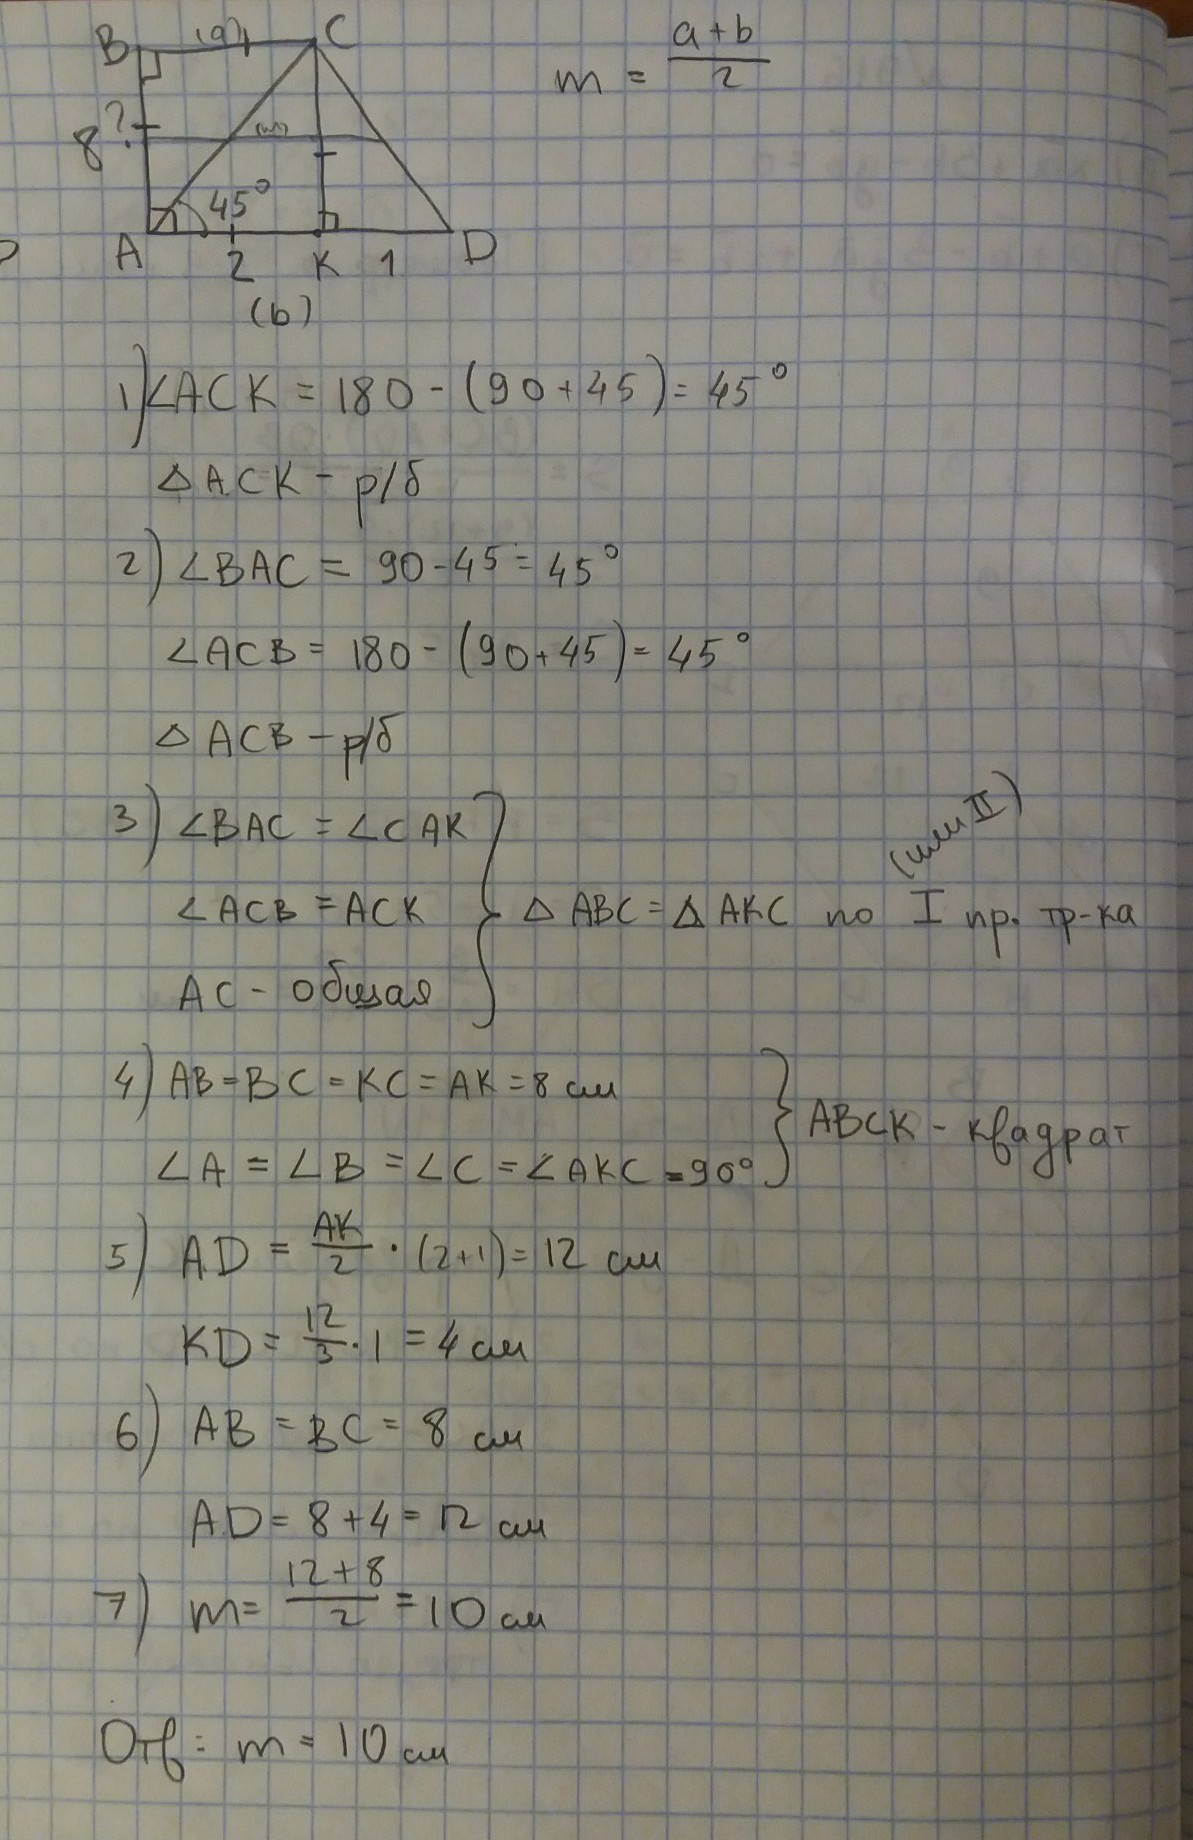 B (a) C
m = a+b/2
8 ? (m)
45°
A 2 K 1 D
(b)
1) ∠ACK = 180 - (90+45) = 45°
△ ACK - р/б
2) ∠BAC = 90-45 = 45°
∠ACB = 180 - (90+45) = 45°
△ ACB - р/б
3) ∠BAC = ∠CAK
(или II)
∠ACB = ACK } △ ABC = △ AKC по I пр. тр-ка
AC - общая
4) AB = BC = KC = AK = 8 см
} ABCK - квадрат
∠A = ∠B = ∠C = ∠AKC = 90°
5) AD = AK/2 · (2+1) = 12 см
KD = 12/3 · 1 = 4 см
6) AB = BC = 8 см
AD = 8+4 = 12 см
7) m = 12+8/2 = 10 см
Отв: m = 10 см